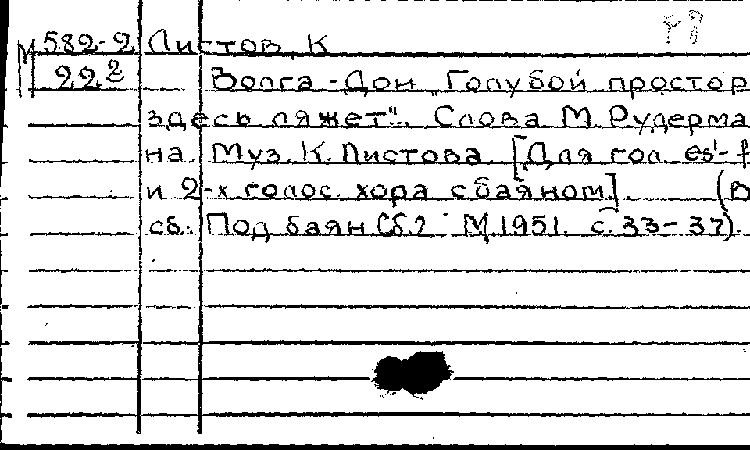 М 582-2 Листов, К
22² Волга-Дон „Голубой простор
здесь ляжет". Слова М. Рудерма
на. Муз. К. Листова. [Для гол. es'-f
и 2-х голос. хора с баяном]. (В
сб. Под баян Сб.2 М. 1951. с. 33-37).